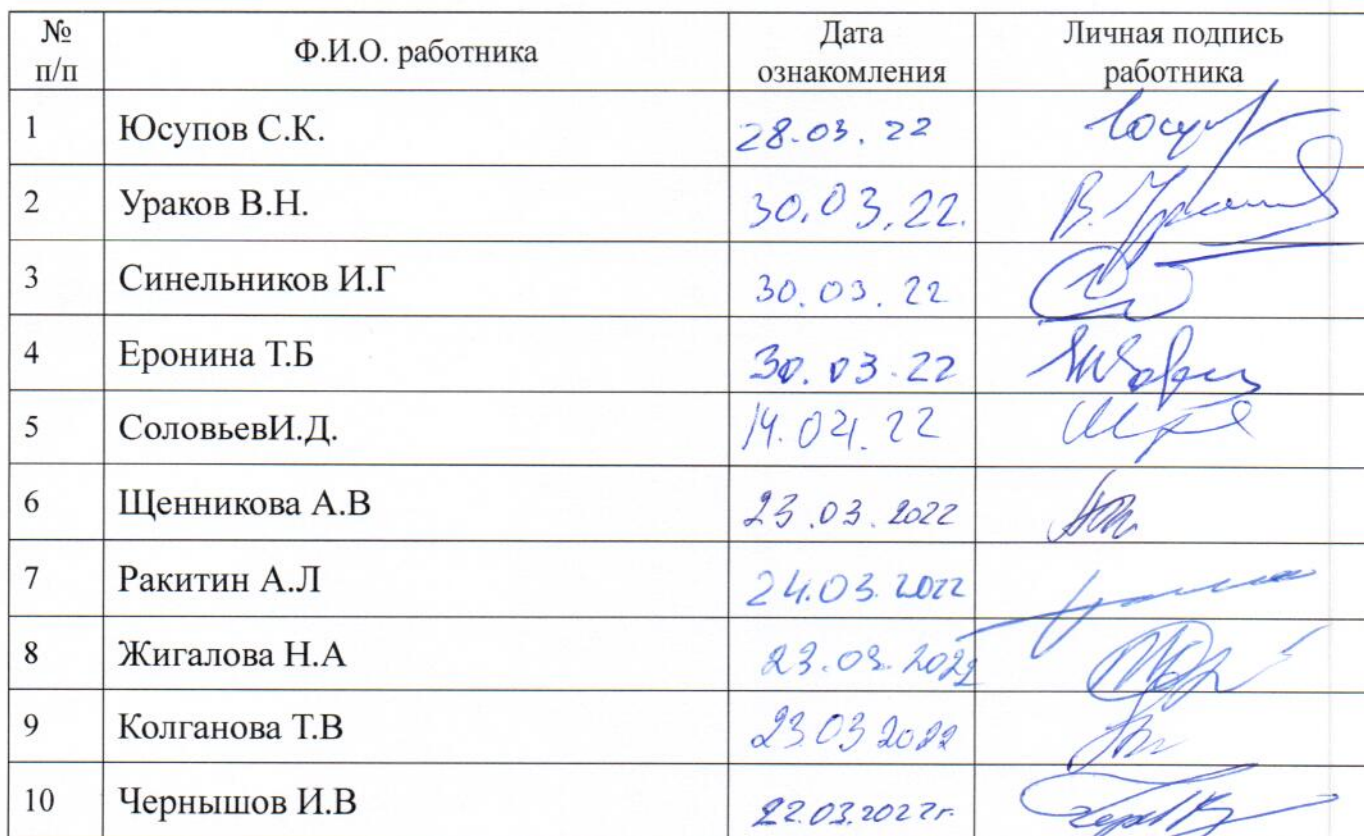 № п/п Ф.И.О. работника Дата ознакомления Личная подпись работника
1 Юсупов С.К. 28.03.22
2 Ураков В.Н. 30.03.22.
3 Синельников И.Г 30.03.22
4 Еронина Т.Б 30.03.22
5 СоловьевИ.Д. 14.04.22
6 Щенникова А.В 23.03.2022
7 Ракитин А.Л 24.03.2022
8 Жигалова Н.А 23.03.2022
9 Колганова Т.В 23.03 2022
10 Чернышов И.В 22.03.2022г.